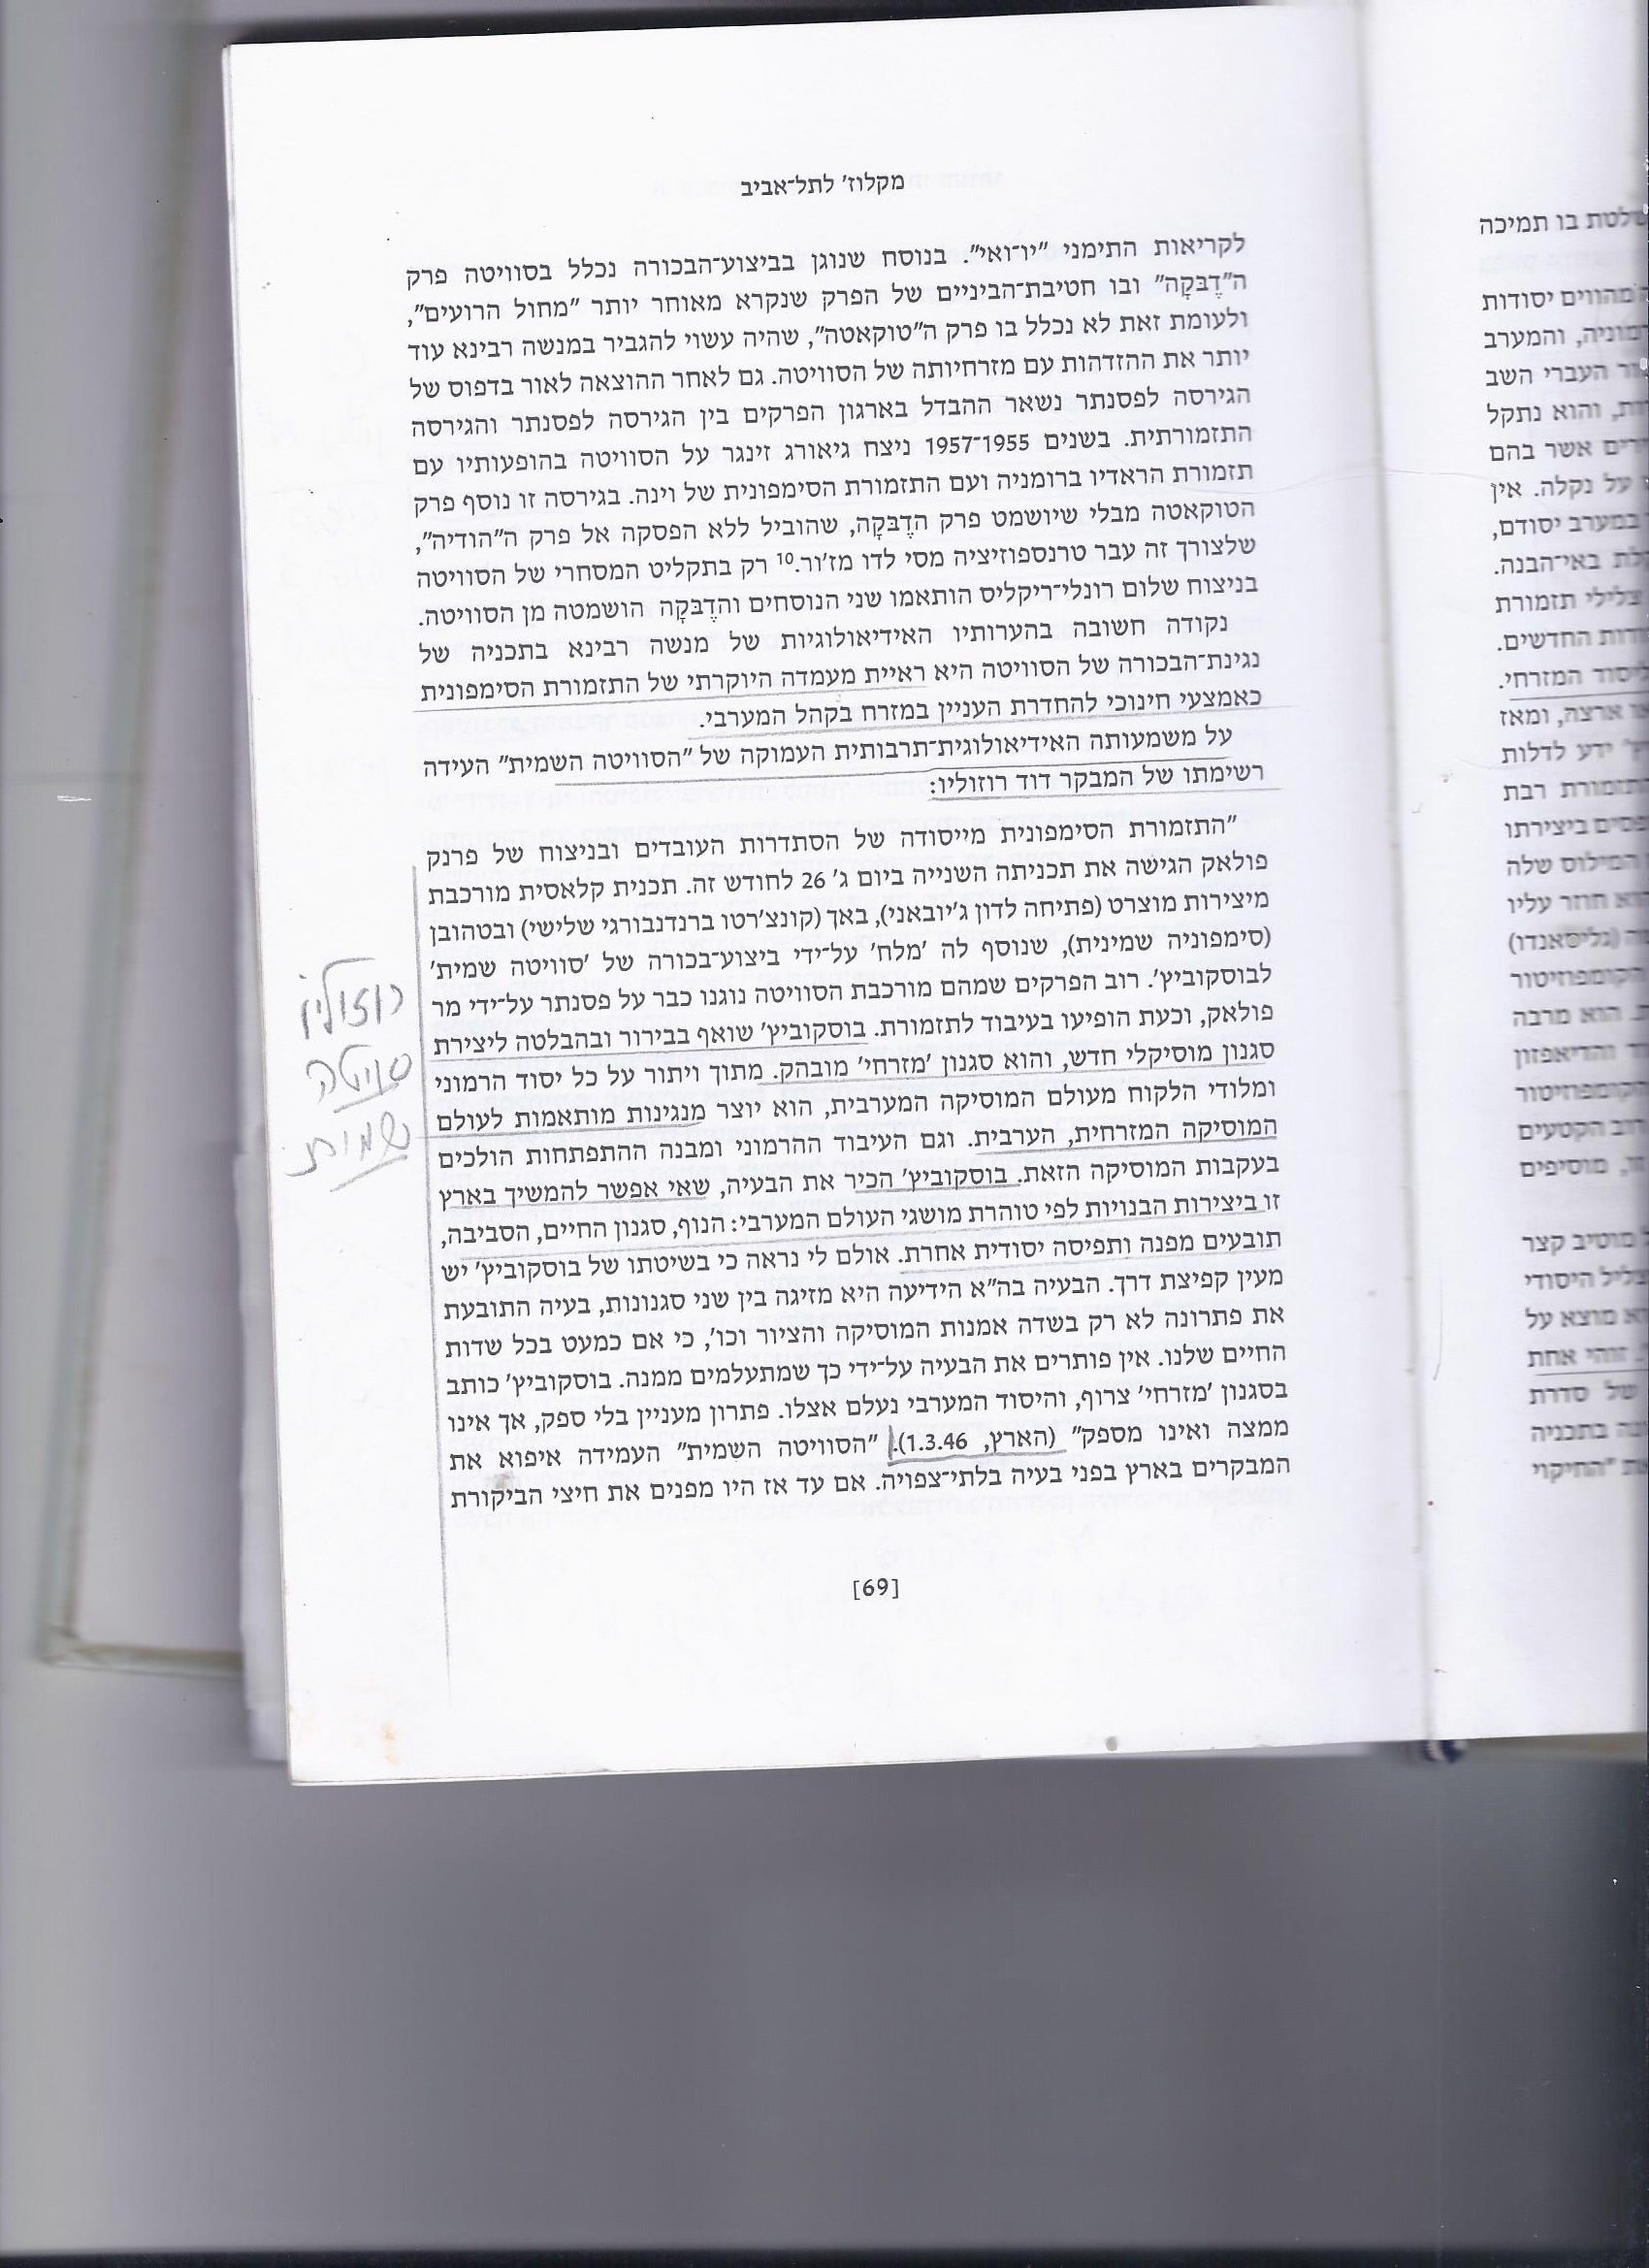 מקלוז' לתל־אביב
לקריאות התימני "יו־ואי". בנוסח שנוגן בביצוע־הבכורה נכלל בסוויטה פרק
ה"דֶבּקָה" ובו חטיבת־הביניים של הפרק שנקרא מאוחר יותר "מחול הרועים",
ולעומת זאת לא נכלל בו פרק ה"טוקאטה", שהיה עשוי להגביר במנשה רבינא עוד
יותר את ההזדהות עם מזרחיותה של הסוויטה. גם לאחר ההוצאה לאור בדפוס של
הגירסה לפסנתר נשאר ההבדל בארגון הפרקים בין הגירסה לפסנתר והגירסה
התזמורתית. בשנים 1955־1957 ניצח גיאורג זינגר על הסוויטה בהופעותיו עם
תזמורת הראדיו ברומניה ועם התזמורת הסימפונית של וינה. בגירסה זו נוסף פרק
הטוקאטה מבלי שיושמט פרק הדֶבּקָה, שהוביל ללא הפסקה אל פרק ה"הודיה",
שלצורך זה עבר טרנספוזיציה מסי לדו מז'ור.10 רק בתקליט המסחרי של הסוויטה
בניצוח שלום רונלי־ריקליס הותאמו שני הנוסחים והדֶבּקָה הושמטה מן הסוויטה.
נקודה חשובה בהערותיו האידיאולוגיות של מנשה רבינא בתכניה של
נגינת־הבכורה של הסוויטה היא ראיית מעמדה היוקרתי של התזמורת הסימפונית
כאמצעי חינוכי להחדרת העניין במזרח בקהל המערבי.
על משמעותה האידיאולוגית־תרבותית העמוקה של "הסוויטה השמית" העידה
רשימתו של המבקר דוד רוזוליו:
"התזמורת הסימפונית מייסודה של הסתדרות העובדים ובניצוח של פרנק
פולאק הגישה את תכניתה השנייה ביום ג' 26 לחודש זה. תכנית קלאסית מורכבת
מיצירות מוצרט (פתיחה לדון ג'יובאני), באך (קונצ'רטו ברנדנבורגי שלישי) ובטהובן
(סימפוניה שמינית), שנוסף לה 'מלח' על־ידי ביצוע־בכורה של 'סוויטה שמית'
לבוסקוביץ'. רוב הפרקים שמהם מורכבת הסוויטה נוגנו כבר על פסנתר על־ידי מר
פולאק, וכעת הופיעו בעיבוד לתזמורת. בוסקוביץ' שואף בבירור ובהבלטה ליצירת
סגנון מוסיקלי חדש, והוא סגנון 'מזרחי' מובהק. מתוך ויתור על כל יסוד הרמוני
ומלודי הלקוח מעולם המוסיקה המערבית, הוא יוצר מנגינות מותאמות לעולם
המוסיקה המזרחית, הערבית. וגם העיבוד ההרמוני ומבנה ההתפתחות הולכים
בעקבות המוסיקה הזאת. בוסקוביץ' הכיר את הבעיה, שאי אפשר להמשיך בארץ
זו ביצירות הבנויות לפי טוהרת מושגי העולם המערבי: הנוף, סגנון החיים, הסביבה,
תובעים מפנה ותפיסה יסודית אחרת. אולם לי נראה כי בשיטתו של בוסקוביץ' יש
מעין קפיצת דרך. הבעיה בה"א הידיעה היא מזיגה בין שני סגנונות, בעיה התובעת
את פתרונה לא רק בשדה אמנות המוסיקה והציור וכו', כי אם כמעט בכל שדות
החיים שלנו. אין פותרים את הבעיה על־ידי כך שמתעלמים ממנה. בוסקוביץ' כותב
בסגנון 'מזרחי' צרוף, והיסוד המערבי נעלם אצלו. פתרון מעניין בלי ספק, אך אינו
ממצה ואינו מספק" (הארץ, 1.3.46). "הסוויטה השמית" העמידה איפוא את
המבקרים בארץ בפני בעיה בלתי־צפויה. אם עד אז היו מפנים את חיצי הביקורת
[69]
רוזוליו
סויטה
שמית
שלטת בו תמיכה
מהווים יסודות
והמערב
העברי השב
והוא נתקל
אשר בהם
על נקלה. אין
במערב יסודם,
באי־הבנה.
צלילי תזמורת
החדשים.
המזרחי.
ארצה, ומאז
ידע לדלות
רבת
ביצירתו
המילוס שלה
חוזר עליו
(גליסאנדו)
הקומפוזיטור
הוא מרבה
והדיאפזון
הקומפוזיטור
הקטעים
מוסיפים
מוטיב קצר
היסודי
מוצא על
זוהי אחת
של סדרת
בתכניה
"החיקוי